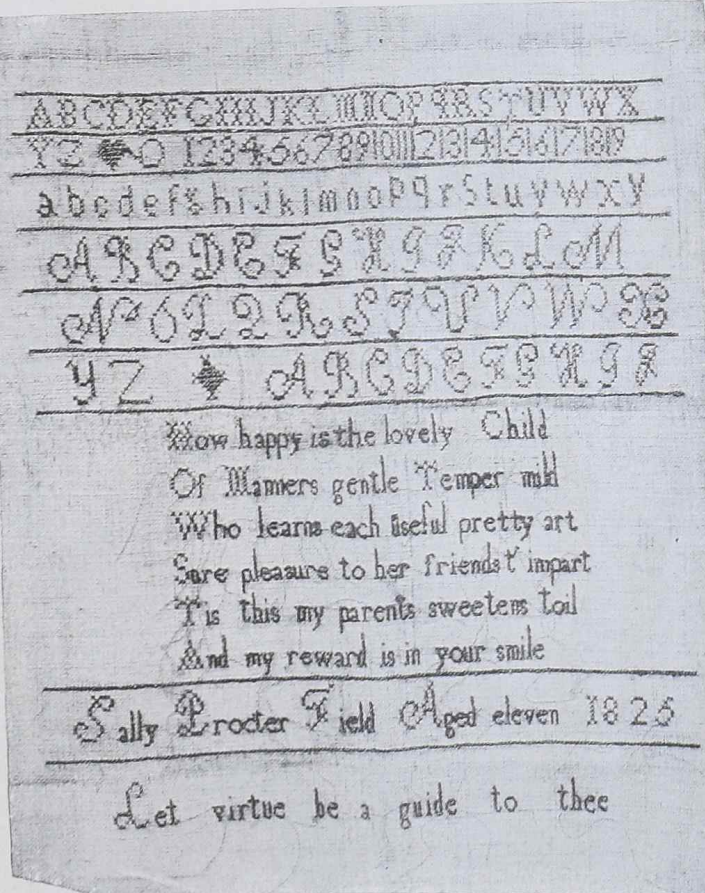 ABCDEFGHIJKLMNOPQRSTUVWX
YZ 12345678910111213141516171819
abcdefghijklmnopqrstuvwxy
ABCDEFGHIJKLM
NOPQRSTUVWX
YZ ABCDEFGHIJ
How happy is the lovely Child
Of Manners gentle Temper mild
Who learns each useful pretty art
Sure pleasure to her friends t' impart
Tis this my parents sweetens toil
And my reward is in your smile
Sally Procter Field Aged eleven 1826
Let virtue be a guide to thee